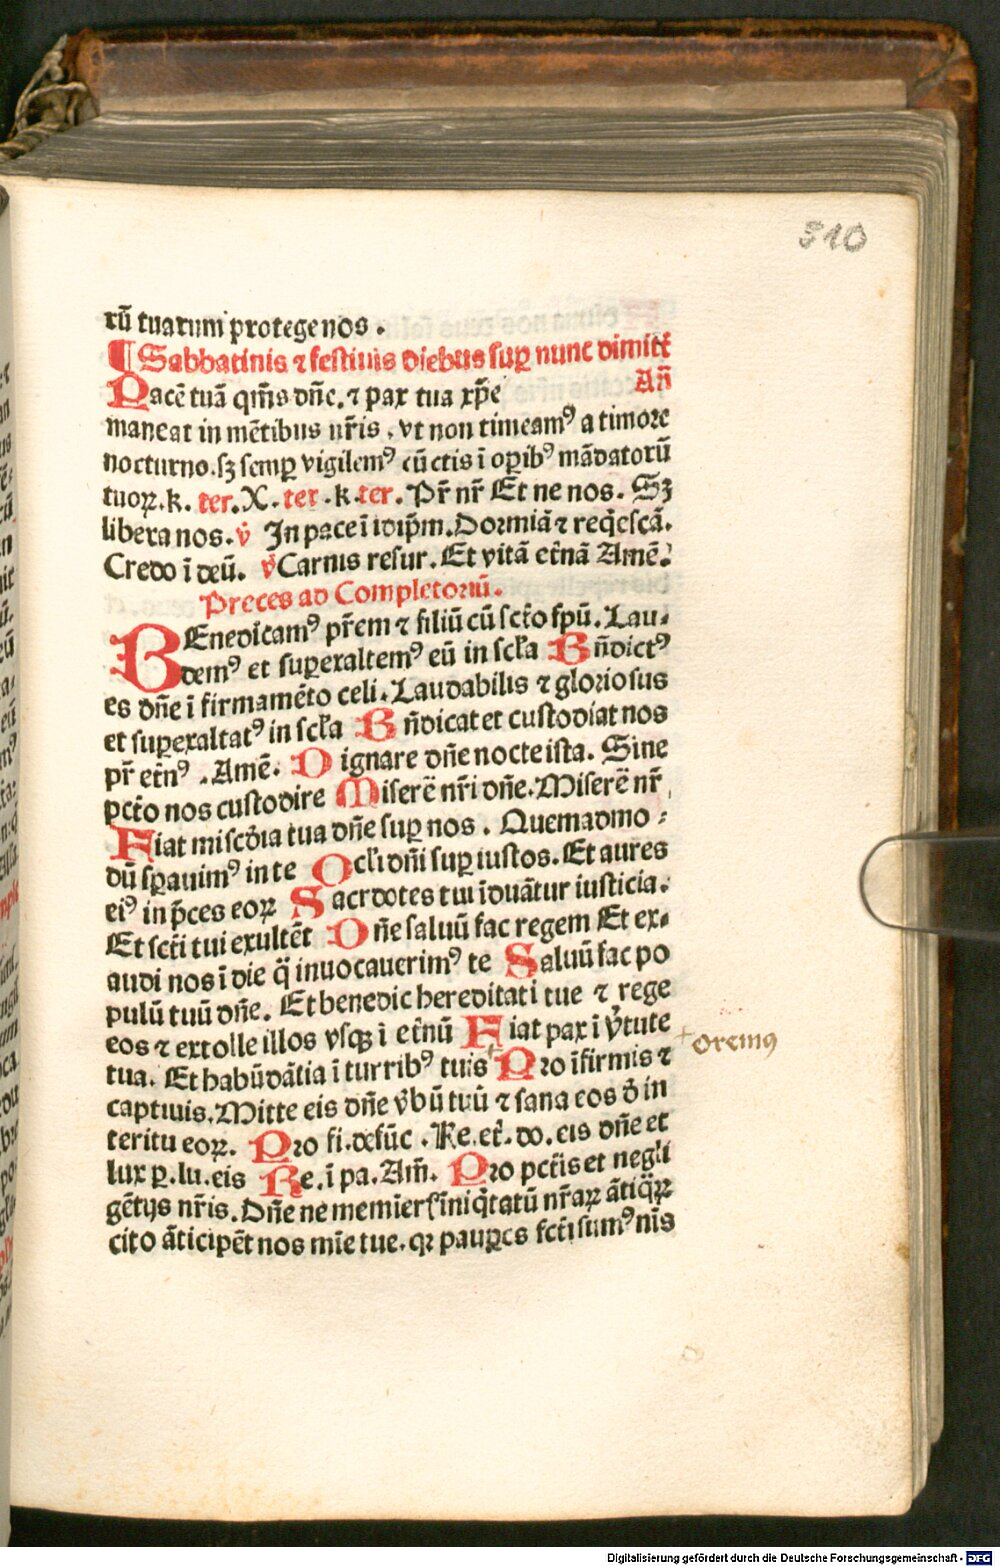 310
rū tuarum protege nos .
¶ Sabbatinis ⁊ festiuis diebus suꝑ nunc dimitt̄
Pacē tuā qm̄s dn̄e. ⁊ pax tua xp̄e An̄
maneat in mētibus nr̄is . vt non timeamꝰ a timore
nocturno. sꝫ semꝑ vigilemꝰ cūctis ī oꝑibꝰ mādatorū
tuoꝝ. k. ter. X. ter . k ter. Pr̄ nr̄ Et ne nos. Sꝫ
libera nos. v̄ In pace ī idip̄m. Dormiā ⁊ req̄escā.
Credo ī deū. v̄ Carnis resur. Et vitā et̄nā Amē.
Preces ad Completoriū.
BEnedicamꝰ pr̄em ⁊ filiū cū sct̄o spū. Lau⸗
demꝰ et suꝑexaltemꝰ eū in scl̄a Bn̄dictꝰ
es dn̄e ī firmamēto celi. Laudabilis ⁊ gloriosus
et suꝑexaltatꝰ in scl̄a Bn̄dicat et custodiat nos
pr̄ et̄nꝰ . Amē. Dignare dn̄e nocte ista. Sine
pct̄o nos custodire Miserē nr̄i dn̄e. Miserē nr̄.
Fiat misc̄dia tua dn̄e suꝑ nos . Quemadmo⸗
dū sꝑauimꝰ in te Ocl̄i dn̄i suꝑ iustos. Et aures
eiꝰ in p̄ces eoꝝ Sacrdotes tui īduātur iusticia.
Et sct̄i tui exultēt Dn̄e saluū fac regem Et ex⸗
audi nos ī die q̄ inuocauerimꝰ te Saluū fac po
pulū tuū dn̄e. Et benedic hereditati tue ⁊ rege
eos ⁊ extolle illos vsqꝫ ī et̄nū Fiat pax ī v̄tute
tua. Et habūdātia ī turribꝰ tuis + Pro īfirmis ⁊
+ oremꝰ
captiuis. Mitte eis dn̄e v̄bū tuū ⁊ sana eos d̄ in
teritu eoꝝ. Pro fi. defūc . Re. et̄. do. eis dn̄e et
lux ꝑ. lu. eis Re. ī pa. Am̄. Pro pct̄is et negli
gētijs nr̄is. Dn̄e ne memīerſ īniq̄tatū nr̄aꝝ ātiq̄ꝝ
cito āticipēt nos mīe tue. qꝛ pauꝑes fct̄i sumꝰ nīs
Digitalisierung gefördert durch die Deutsche Forschungsgemeinschaft - DFG